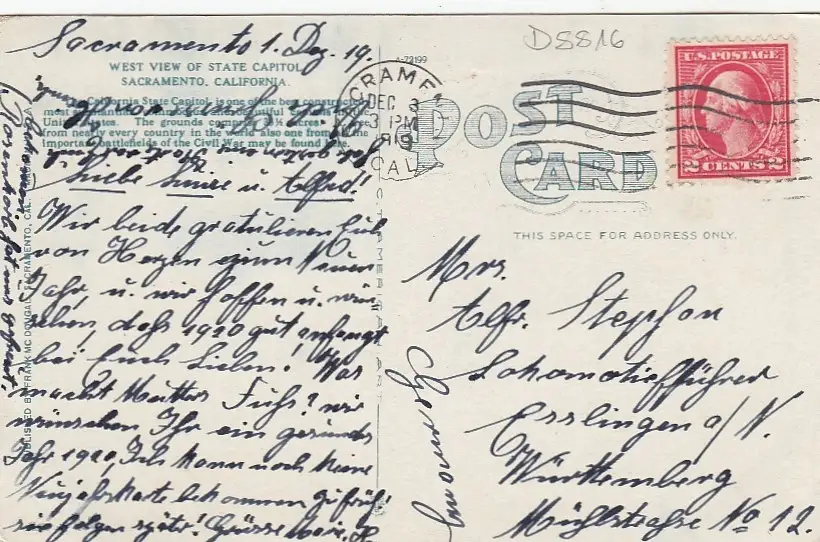 Sacramento 1. Dez. 19.
WEST VIEW OF STATE CAPITOL
SACRAMENTO, CALIFORNIA.
California State Capitol, is one of the best constructed
most
Unit States. The grounds
from nearly every country in the world also one from
important battlefields of the Civil War may be found here.
Liebe Luise u. Alfred!
Wir beide gratulieren Euch
von Herzen zum Neuen
Jahr, u. wir hoffen u. wün
schen, dass 1920 gut anfangt
bei Euch Lieben! Was
macht Mutters Fuss? wir
wünschen Ihr ein gesundes
Jahr 1920, Ich kann noch keine
Neujahrskarte bekommen zu früh!
sie folgen später! Grüsse
PUBLISHED BY FRANK MC DOUGAL, SACRAMENTO, CAL.
A-73199
SACRAME
DEC 3
3 PM
1919
CAL.
D5816
POST
CARD
U.S. POSTAGE
2 CENTS 2
THIS SPACE FOR ADDRESS ONLY.
Mrs.
Alfr. Stephan
Lokomotivführer
Esslingen a/N.
Württemberg
Mühlstrasse No 12.
Germany